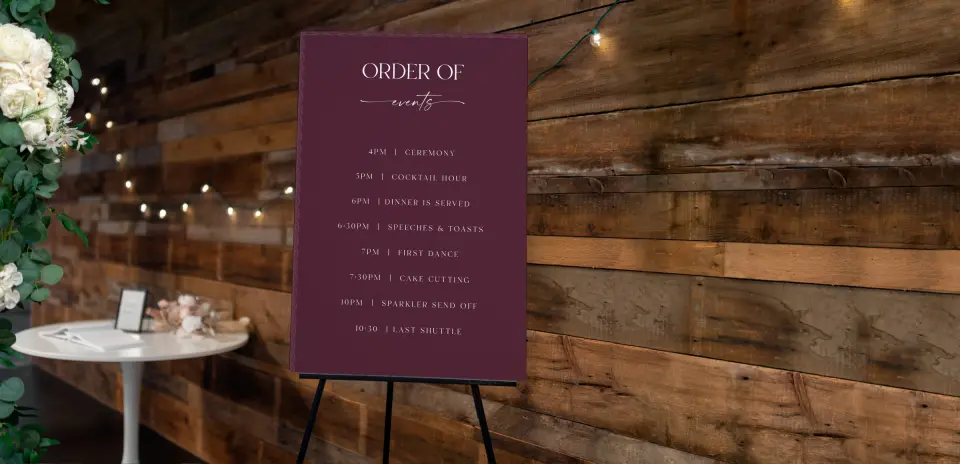 ORDER OF
events
4PM | CEREMONY
5PM | COCKTAIL HOUR
6PM | DINNER IS SERVED
6:30PM | SPEECHES & TOASTS
7PM | FIRST DANCE
7:30PM | CAKE CUTTING
10PM | SPARKLER SEND OFF
10:30 | LAST SHUTTLE